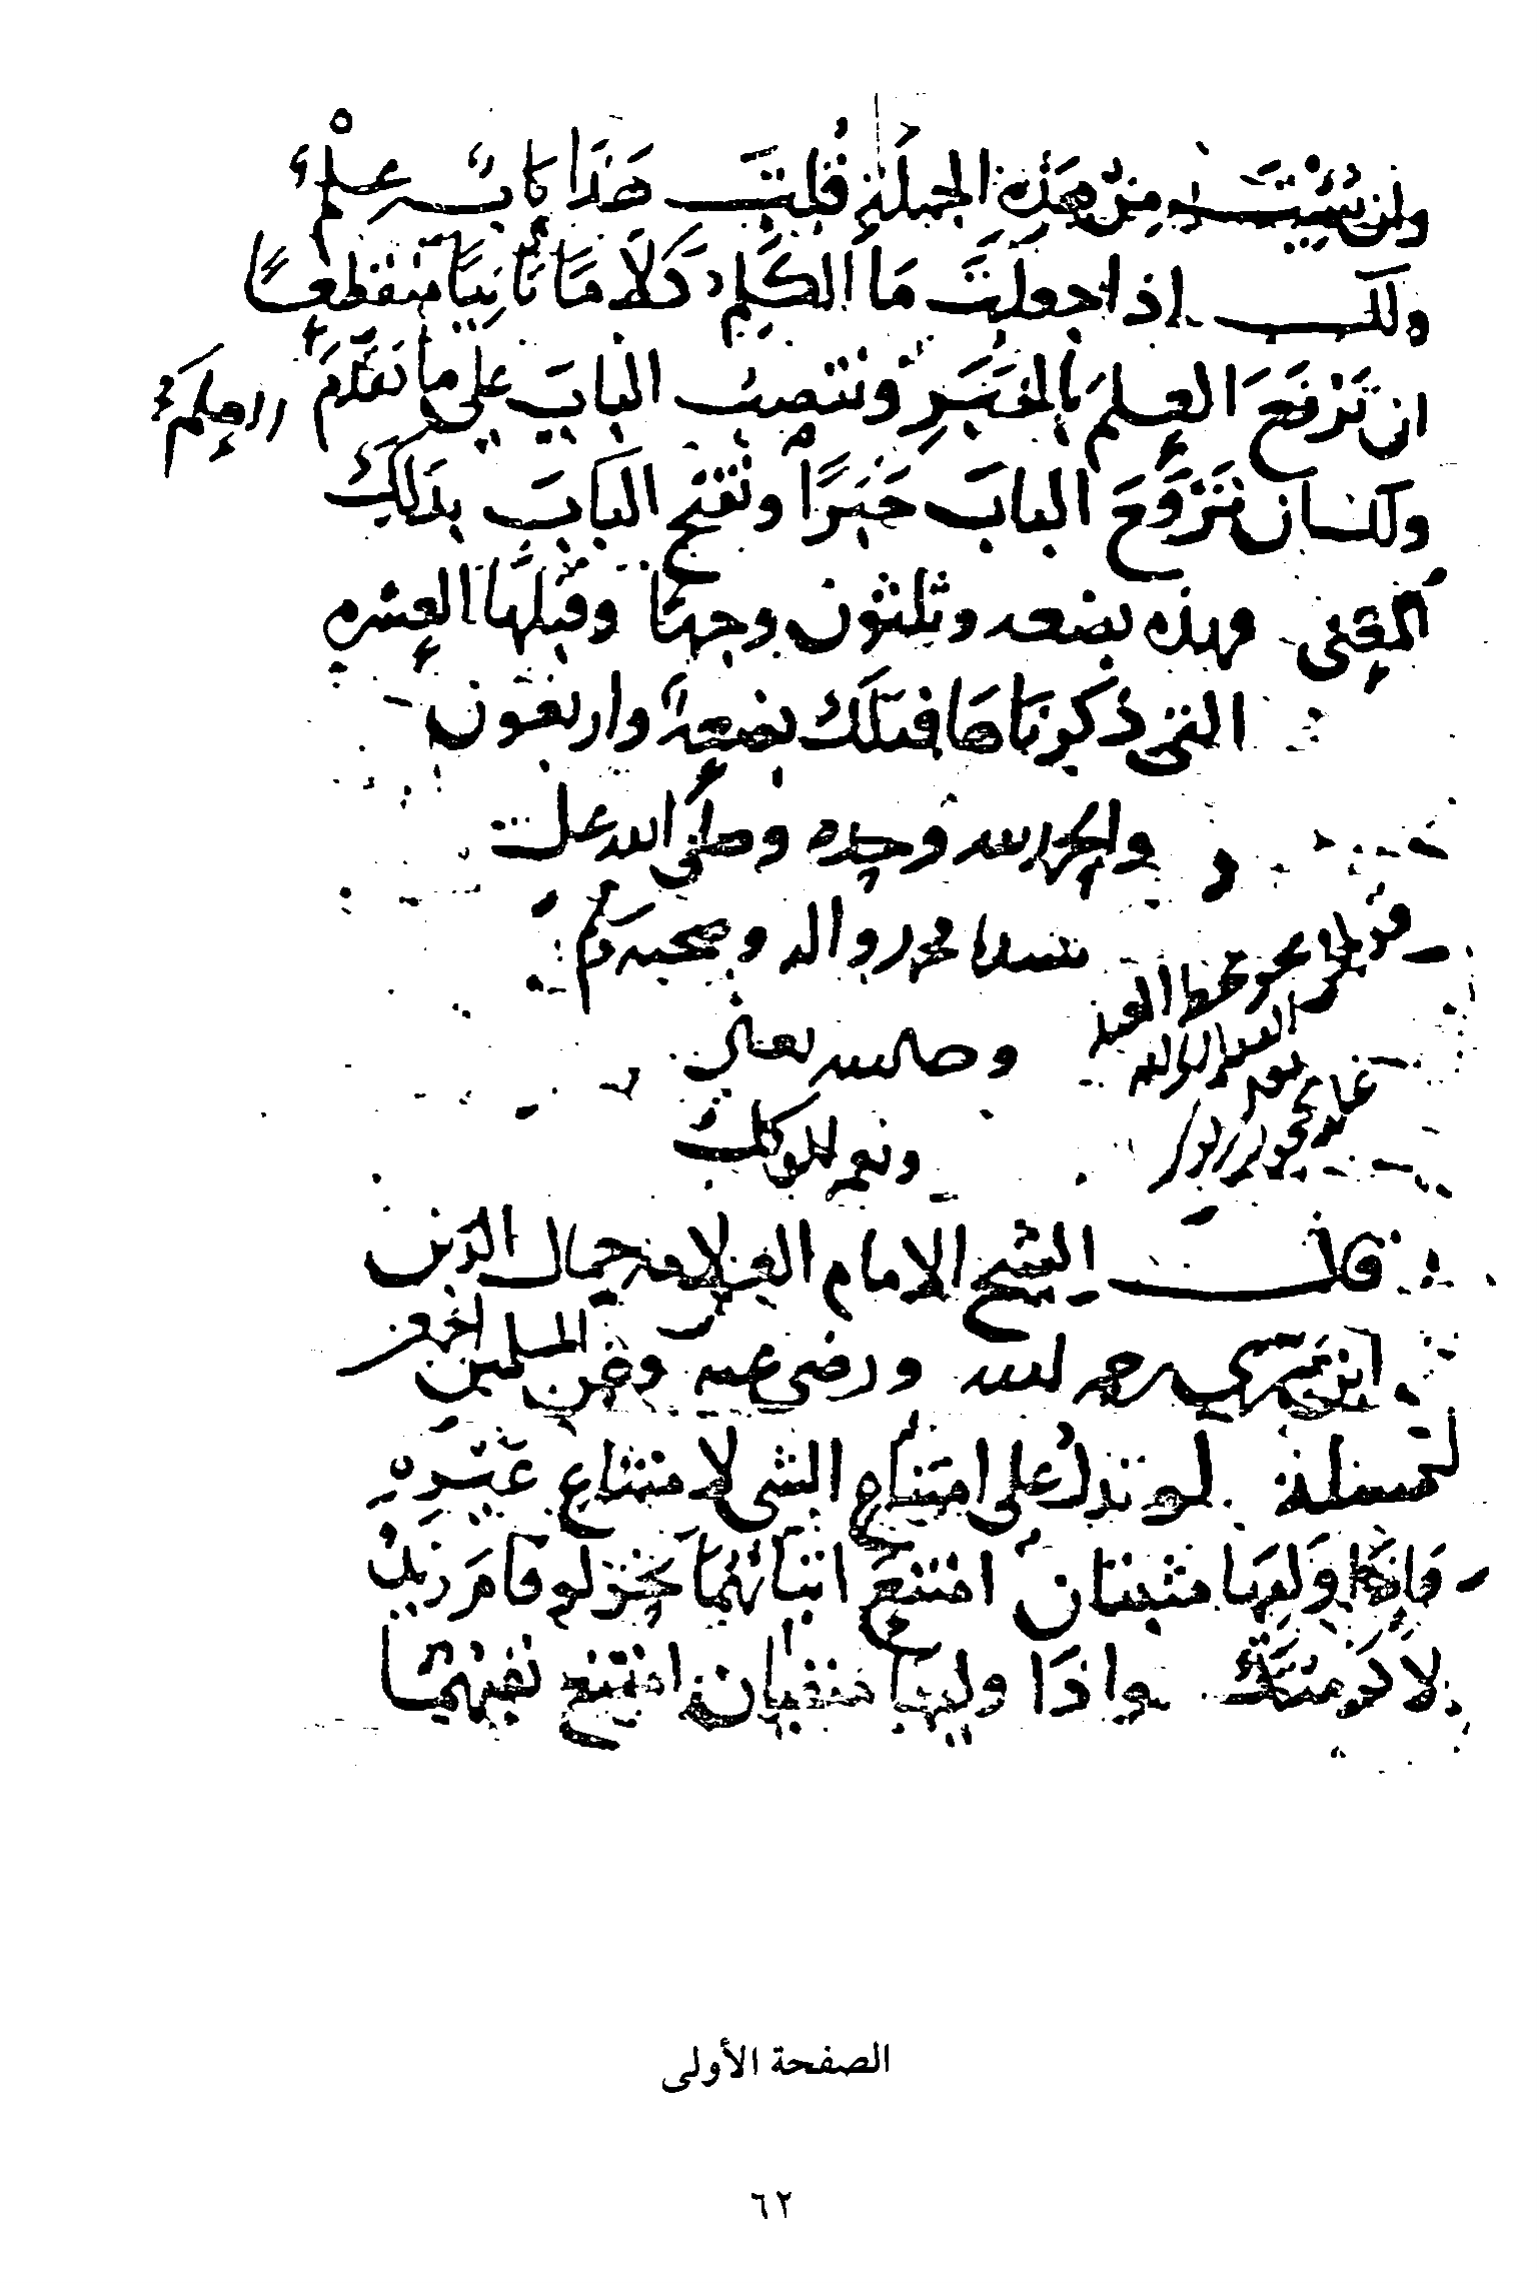 وإن شئت من هذه الجملة قلت هذا باب علم
ولك إذا جعلت ما الكلم كلاما ثانيا منقطعا
ان ترفع العلم بالخبر وتنصب الباب على ما تقدم
ولك ان ترفع الباب خبرا وتفتح الباب بذلك
المعنى فهذه بضعه وثلثون وجها وقبلها العشره
التي ذكرناها فتلك بضعة واربعون
والحمد لله وحده وصلى الله على
سيدنا محمد واله وصحبه وسلم
لله تعالى
ونعم الوكيل
قال الشيخ الامام العلامه جمال الدين
ابن رحمه الله ورضي عنه وعن المسلمين اجمعين
مسئلة لو تدل على امتناع الشي لامتناع غيره
وإذا وليها مثبتان امتنع اثباتهما نحو لو قام زيد
لاكرمتك واذا وليها منفيان امتنع نفيهما
الصفحة الأولى
٦٢